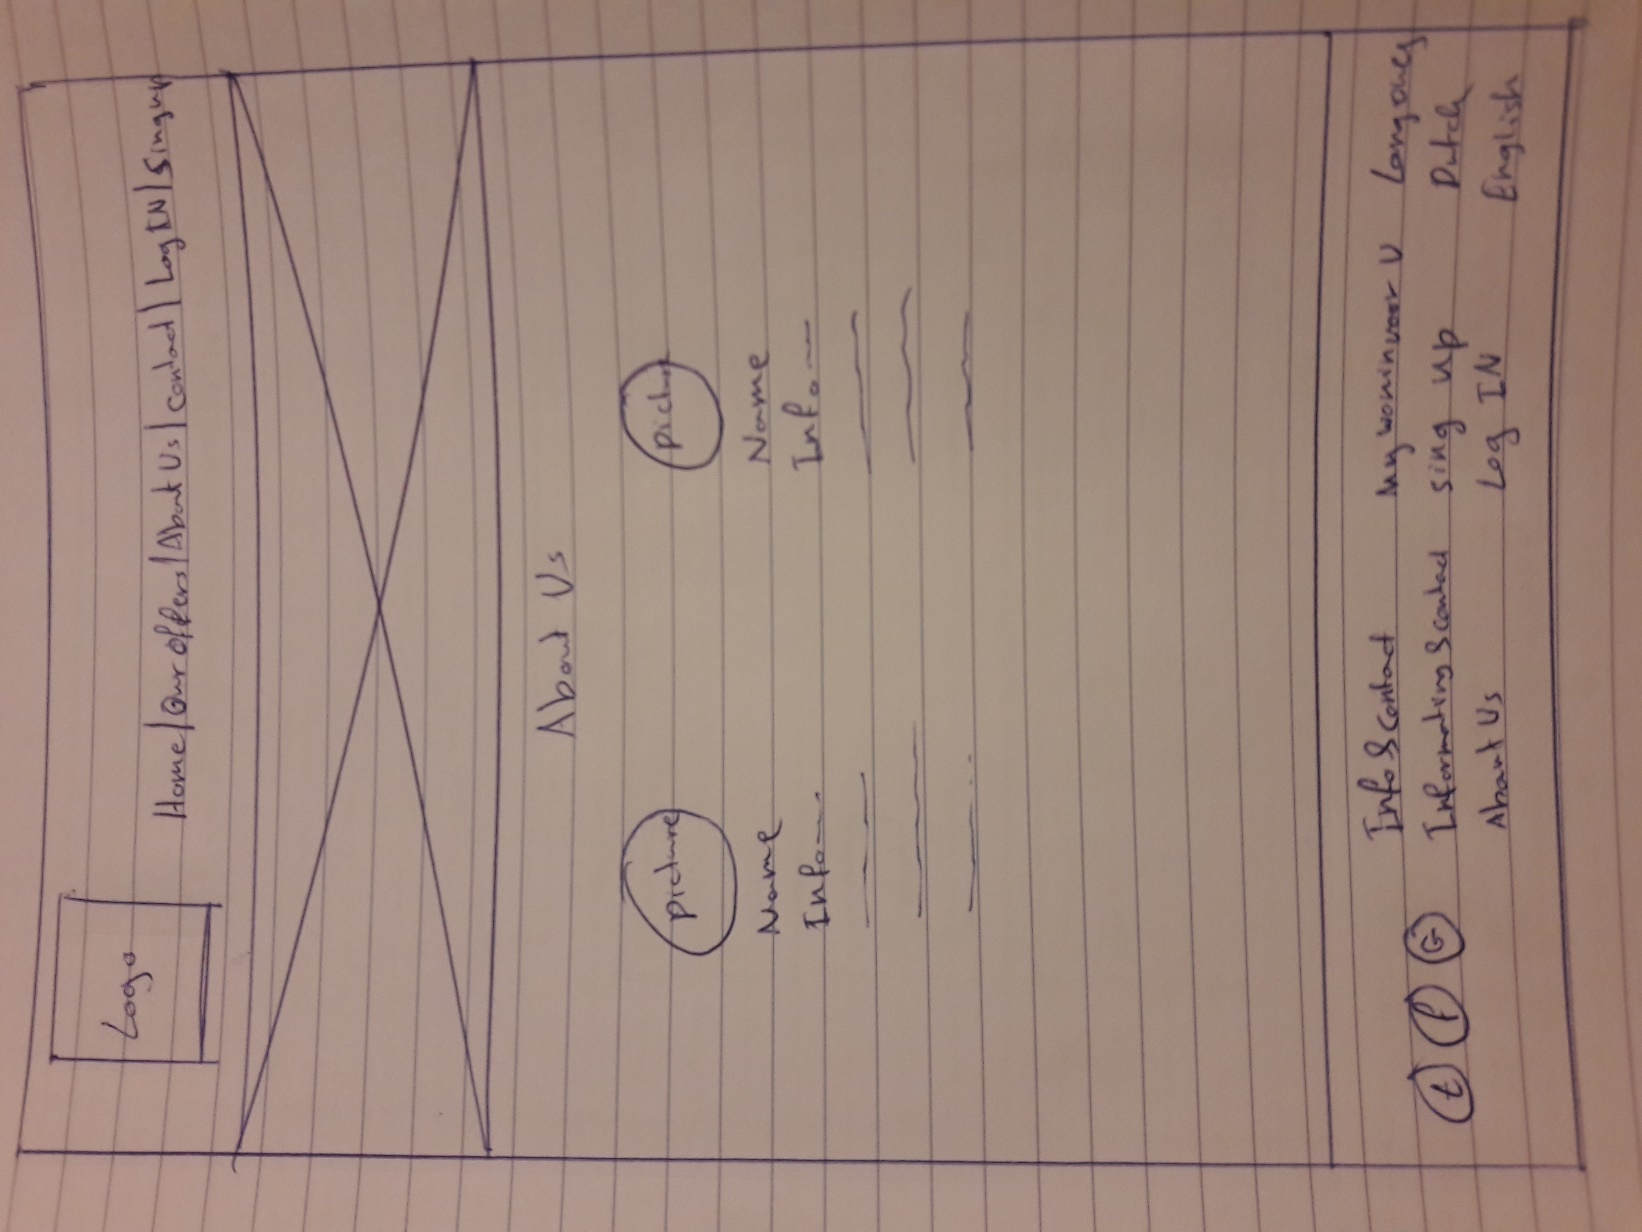 Logo
Home | Our Offers | About Us | Contact | Log IN | Singup
About Us
picture
Name
Info
Name
Info
t f G
Info & Contact
Informating & contact
About Us
sing up
Log IN
Dutch
English